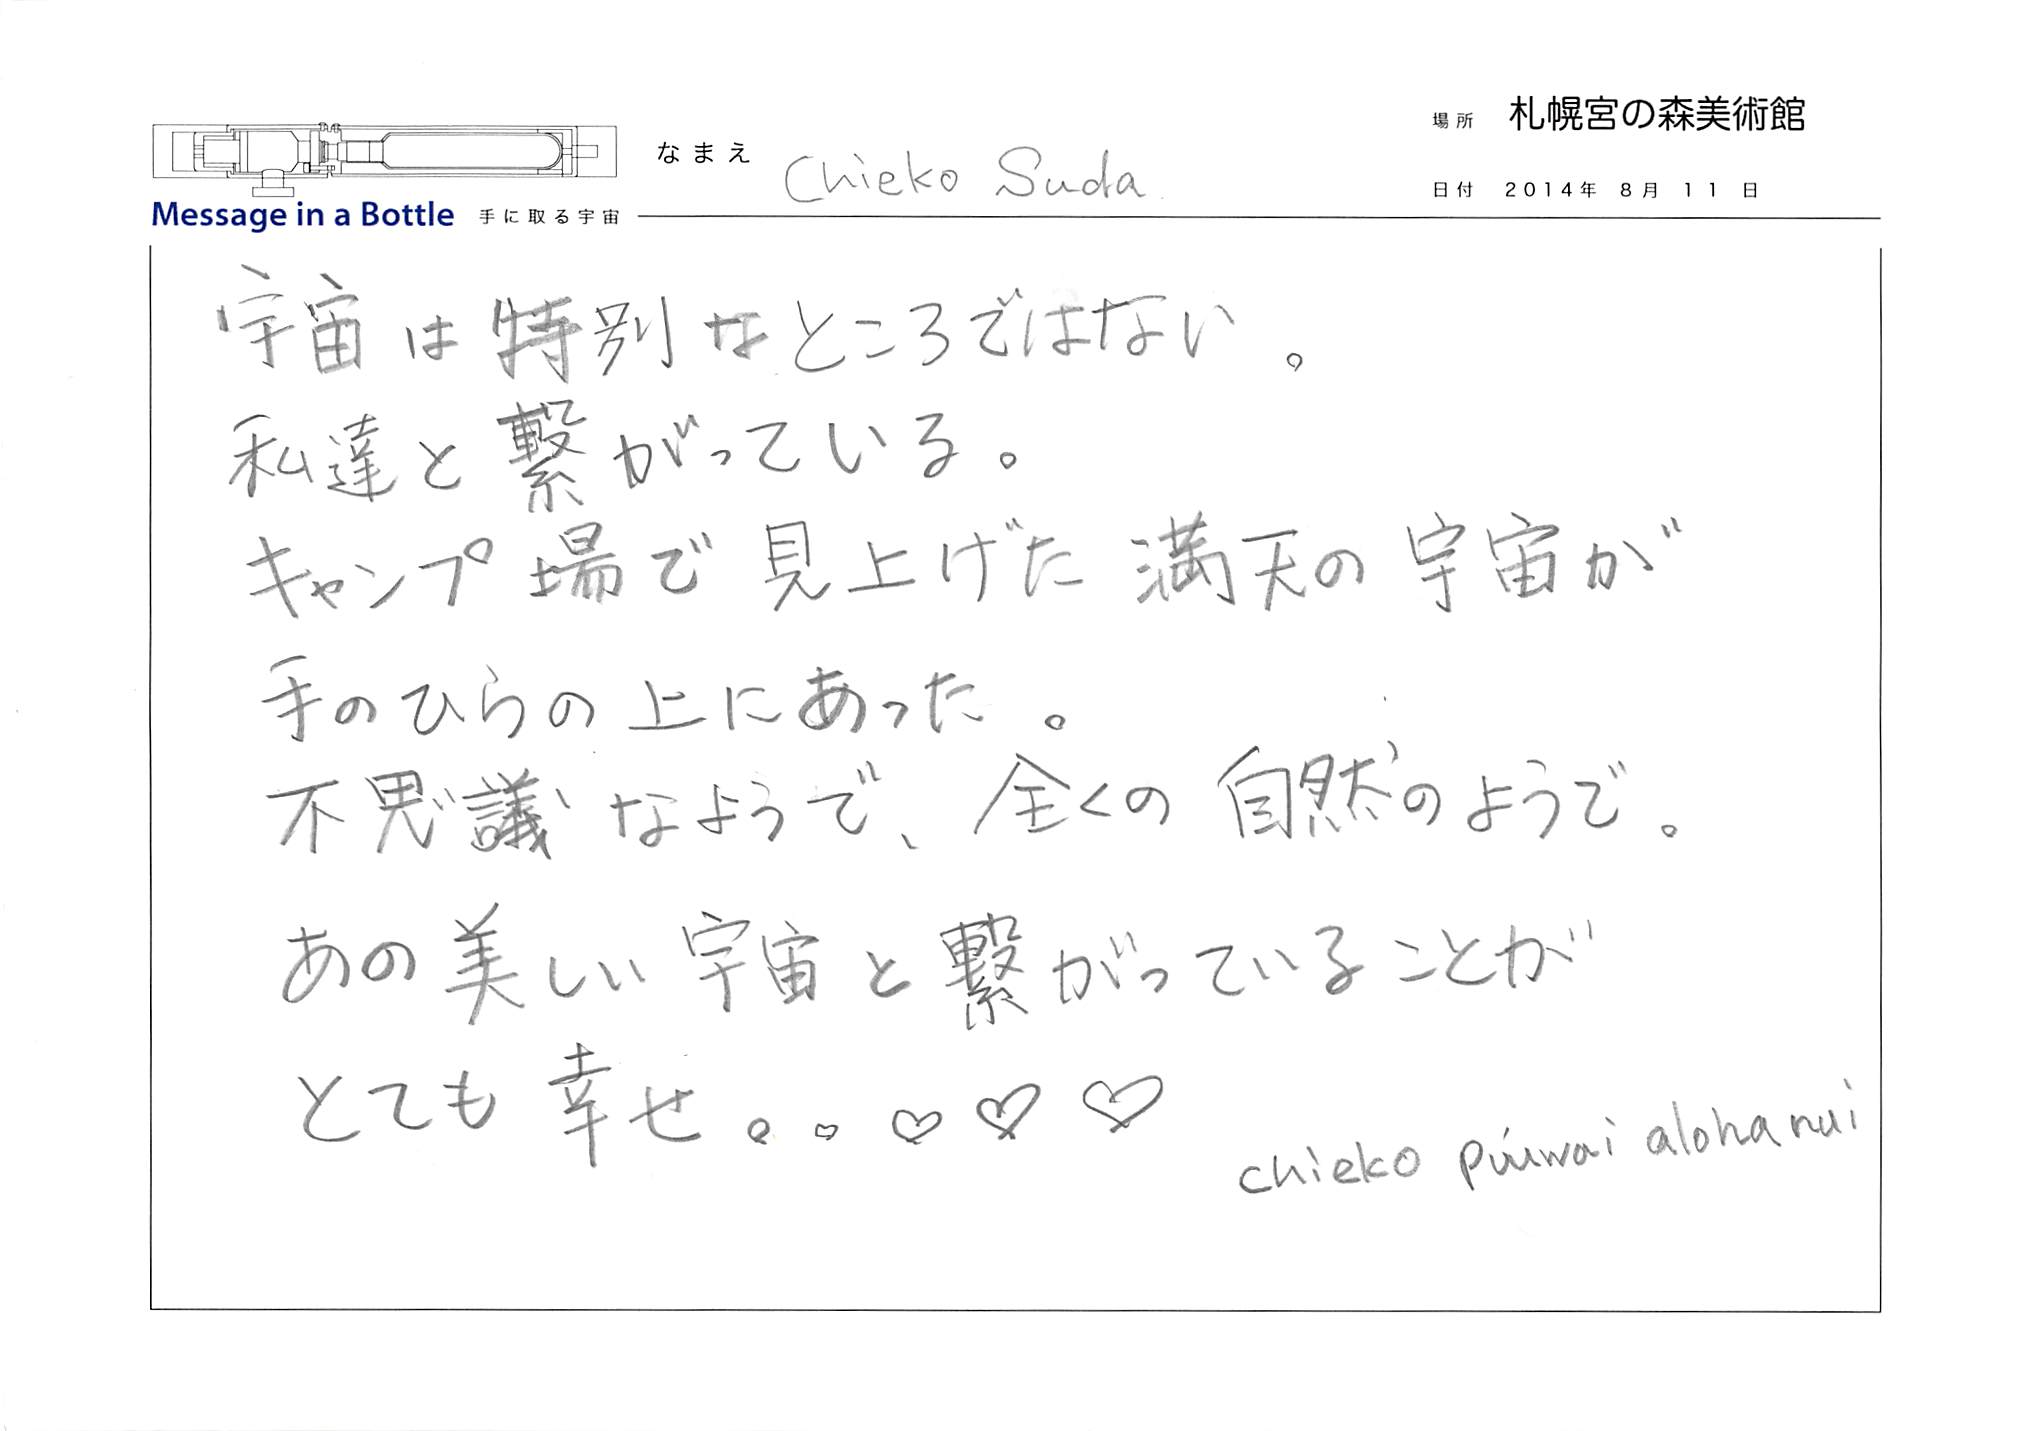 場所 札幌宮の森美術館
なまえ Chieko Suda
日付 2014年 8月 11日
Message in a Bottle 手に取る宇宙
宇宙は特別なところではない。
私達と繋がっている。
キャンプ場で見上げた満天の宇宙が
手のひらの上にあった。
不思議なようで、全くの自然のようで。
あの美しい宇宙と繋がっていることが
とても幸せ。。。♡♡♡
chieko pu'uwai aloha nui